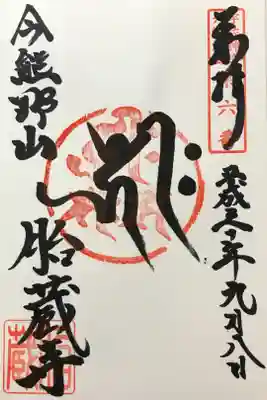 奉拝
平成三十年九月八日
今熊野山
胎蔵寺